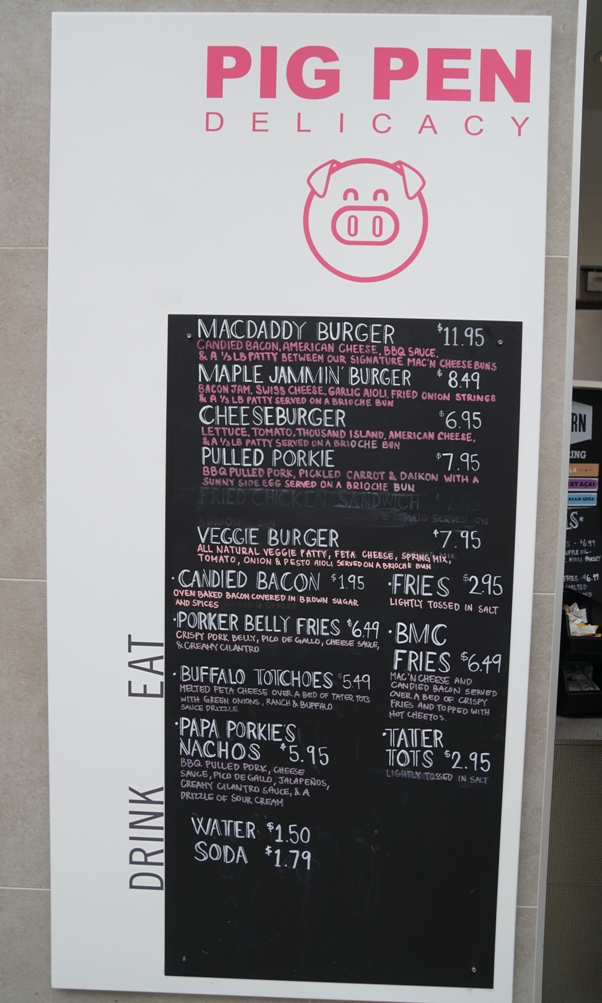 PIG PEN
DELICACY
MACDADDY BURGER $11.95
CANDIED BACON, AMERICAN CHEESE, BBQ SAUCE,
& A ⅓ LB PATTY BETWEEN OUR SIGNATURE MAC'N CHEESE BUNS
MAPLE JAMMIN' BURGER $8.49
BACON JAM, SWISS CHEESE, GARLIC AIOLI, FRIED ONION STRINGS
& A ⅓ LB PATTY SERVED ON A BRIOCHE BUN
CHEESEBURGER $6.95
LETTUCE, TOMATO, THOUSAND ISLAND, AMERICAN CHEESE,
& A ⅓ LB PATTY SERVED ON A BRIOCHE BUN
PULLED PORKIE $7.95
BBQ PULLED PORK, PICKLED CARROT & DAIKON WITH A
SUNNY SIDE EGG SERVED ON A BRIOCHE BUN
FRIED CHICKEN SANDWICH
VEGGIE BURGER $7.95
ALL NATURAL VEGGIE PATTY, FETA CHEESE, SPRING MIX,
TOMATO, ONION & PESTO AIOLI SERVED ON A BRIOCHE BUN
·CANDIED BACON $1.95
OVEN BAKED BACON COVERED IN BROWN SUGAR
AND SPICES
·FRIES $2.95
LIGHTLY TOSSED IN SALT
·PORKER BELLY FRIES $6.49
CRISPY PORK BELLY, PICO DE GALLO, CHEESE SAUCE,
& CREAMY CILANTRO
·BMC
FRIES $6.49
MAC'N CHEESE AND
CANDIED BACON SERVED
OVER A BED OF CRISPY
FRIES AND TOPPED WITH
HOT CHEETOS.
·BUFFALO TOTCHOES $5.49
MELTED FETA CHEESE OVER A BED OF TATER TOTS
WITH GREEN ONIONS, RANCH & BUFFALO
SAUCE DRIZZLE
·PAPA PORKIE'S
NACHOS $5.95
BBQ PULLED PORK, CHEESE
SAUCE, PICO DE GALLO, JALAPEÑOS,
CREAMY CILANTRO SAUCE, & A
DRIZZLE OF SOUR CREAM
·TATER
TOTS $2.95
LIGHTLY TOSSED IN SALT
WATER $1.50
SODA $1.79
EAT
DRINK